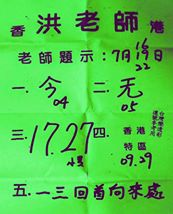 香 洪老師 港
老師題示:7月19 16 22
一.今 04 二.无 05
三.17.27 四.香港特區 09.29
五.一三回首向來處